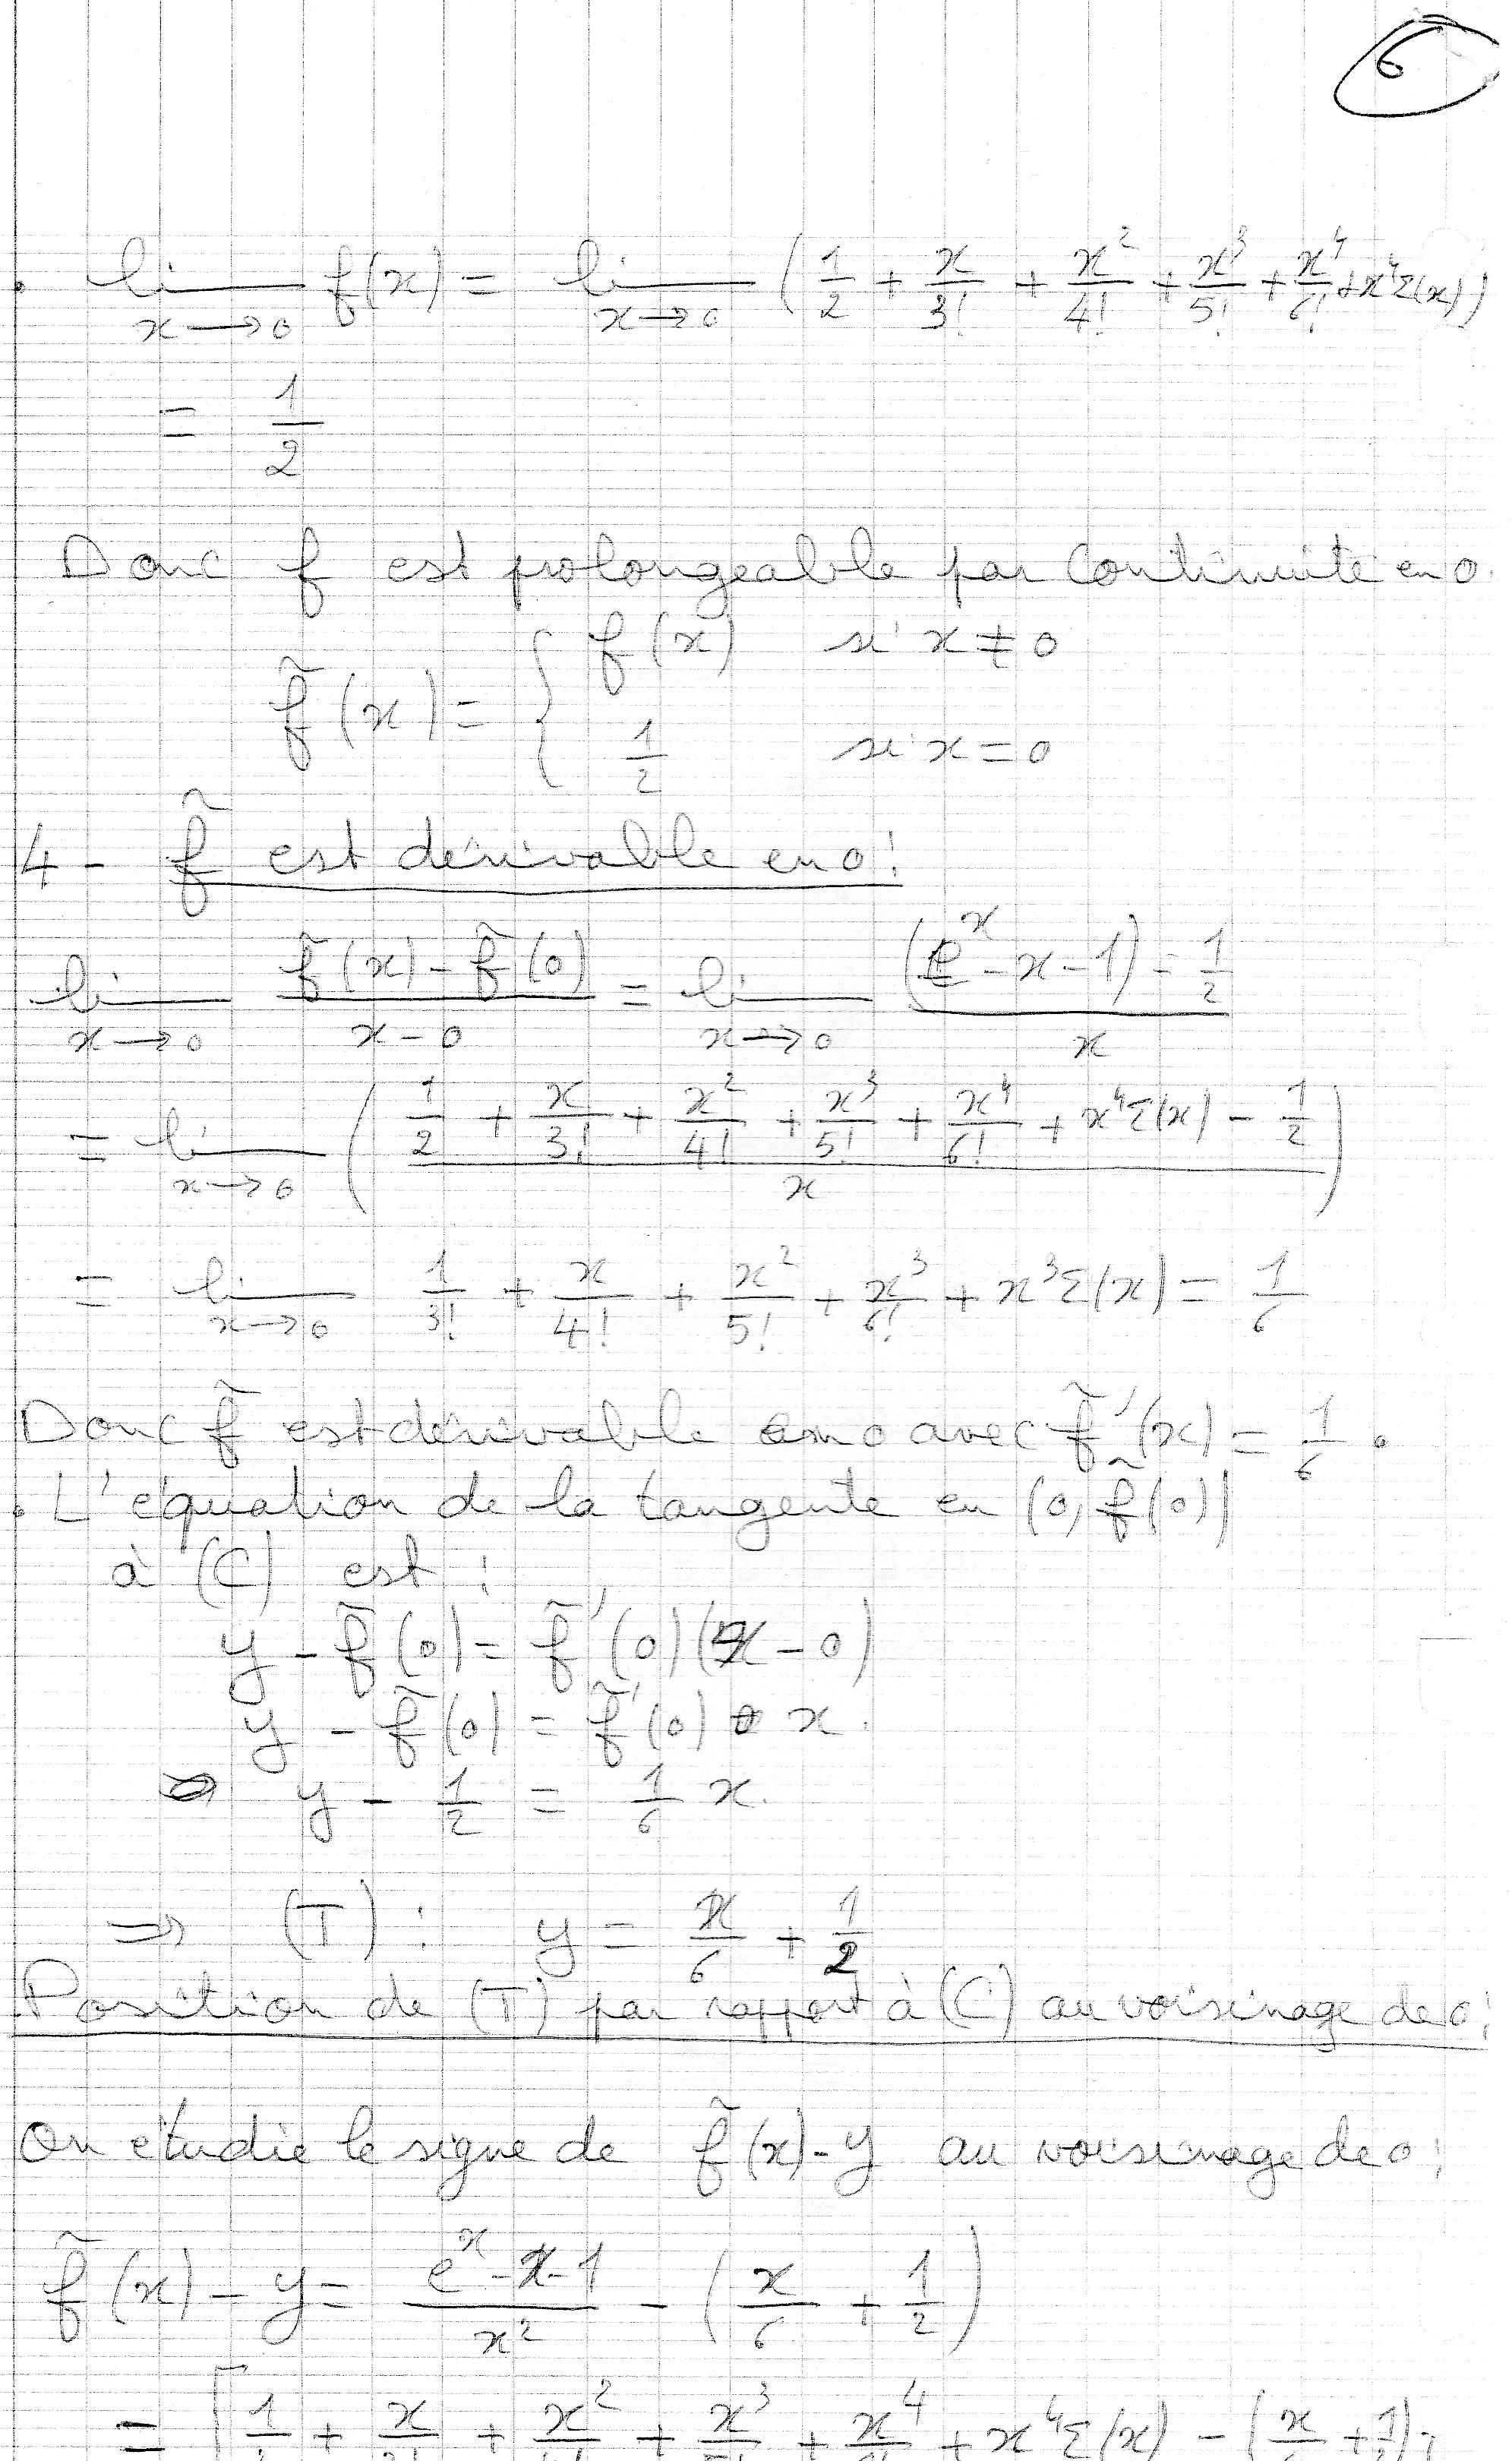 6
. lim_{x→0} f(x) = lim_{x→0} (1/2 + x/3! + x²/4! + x³/5! + x⁴/6! + x⁴Σ(x))
= 1/2
Donc f est prolongeable par continuité en 0.
f̃(x) = { f(x) si x ≠ 0
1/2 si x = 0
4 - f̃ est dérivable en 0 :
lim_{x→0} (f̃(x) - f̃(0))/(x - 0) = lim_{x→0} ((e^x - x - 1) - 1/2)/x
= lim_{x→0} ((1/2 + x/3! + x²/4! + x³/5! + x⁴/6! + x⁴Σ(x) - 1/2)/x)
= lim_{x→0} 1/3! + x/4! + x²/5! + x³/6! + x³Σ(x) = 1/6
Donc f̃ est dérivable en 0 avec f̃'(x) = 1/6 .
. L'équation de la tangente en (0, f̃(0))
à (C) est :
y - f̃(0) = f̃'(0)(x - 0)
y - f̃(0) = f̃'(0) • x.
⇒ y - 1/2 = 1/6 x.
⇒ (T) : y = x/6 + 1/2
Position de (T) par rapport à (C) au voisinage de 0 :
On étudie le signe de f̃(x) - y au voisinage de 0 :
f̃(x) - y = (e^x - x - 1)/x² - (x/6 + 1/2)
= [1/2 + x/3! + x²/4! + x³/5! + x⁴/6! + x⁴Σ(x) - (x/6 + 1/2)]